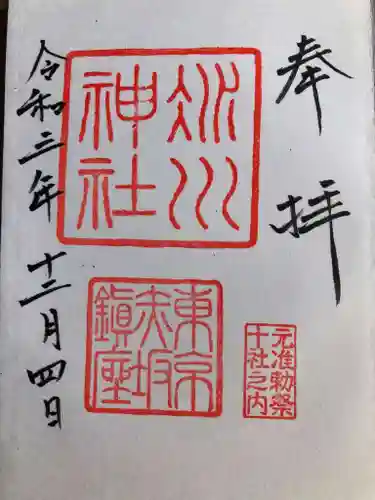 奉拝
氷川
神社
東京
赤坂
鎮座
元准勅祭
十社之内
令和三年 十二月四日